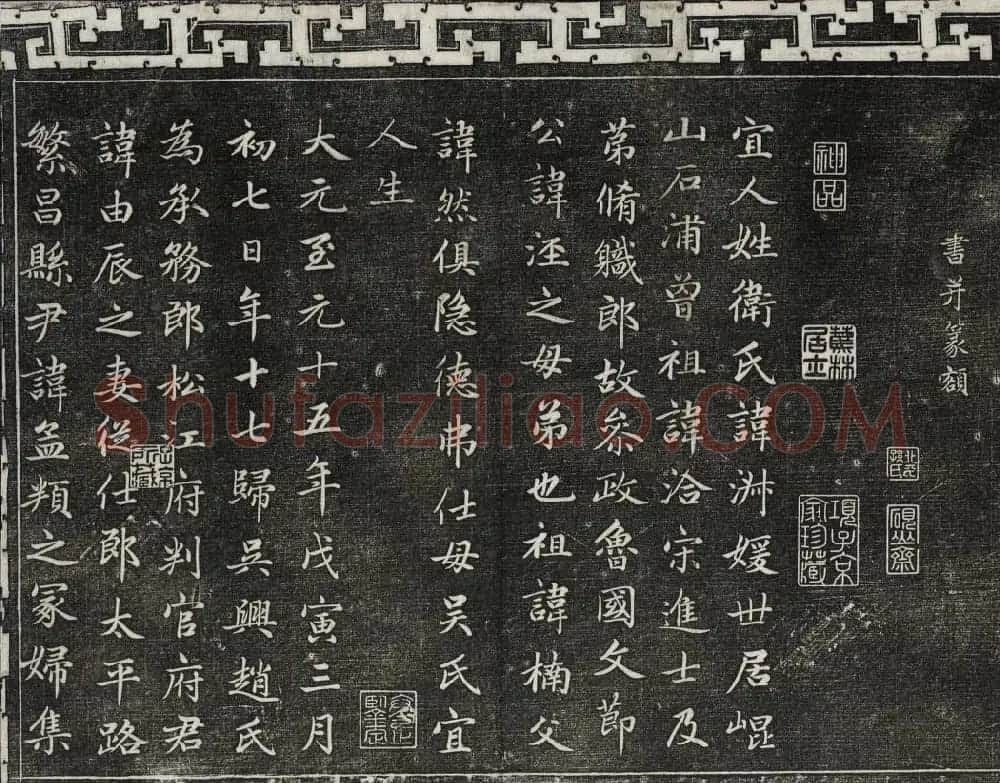 書并篆額
神品
蕉林居士
項子京家珍藏
宜人姓衛氏諱淑媛世居崐
山石浦曾祖諱洽宋進士及
第脩職郎故叅政魯國文節
公諱涇之母弟也祖諱楠父
諱然俱隐德弗仕母吴氏宜
人生
大元至元十五年戊寅三月
初七日年十七歸吳興趙氏
為承務郎松江府判官府君
諱由辰之妻従仕郎太平路
繁昌縣尹諱孟頖之冢婦集
Shufaziliao.COM